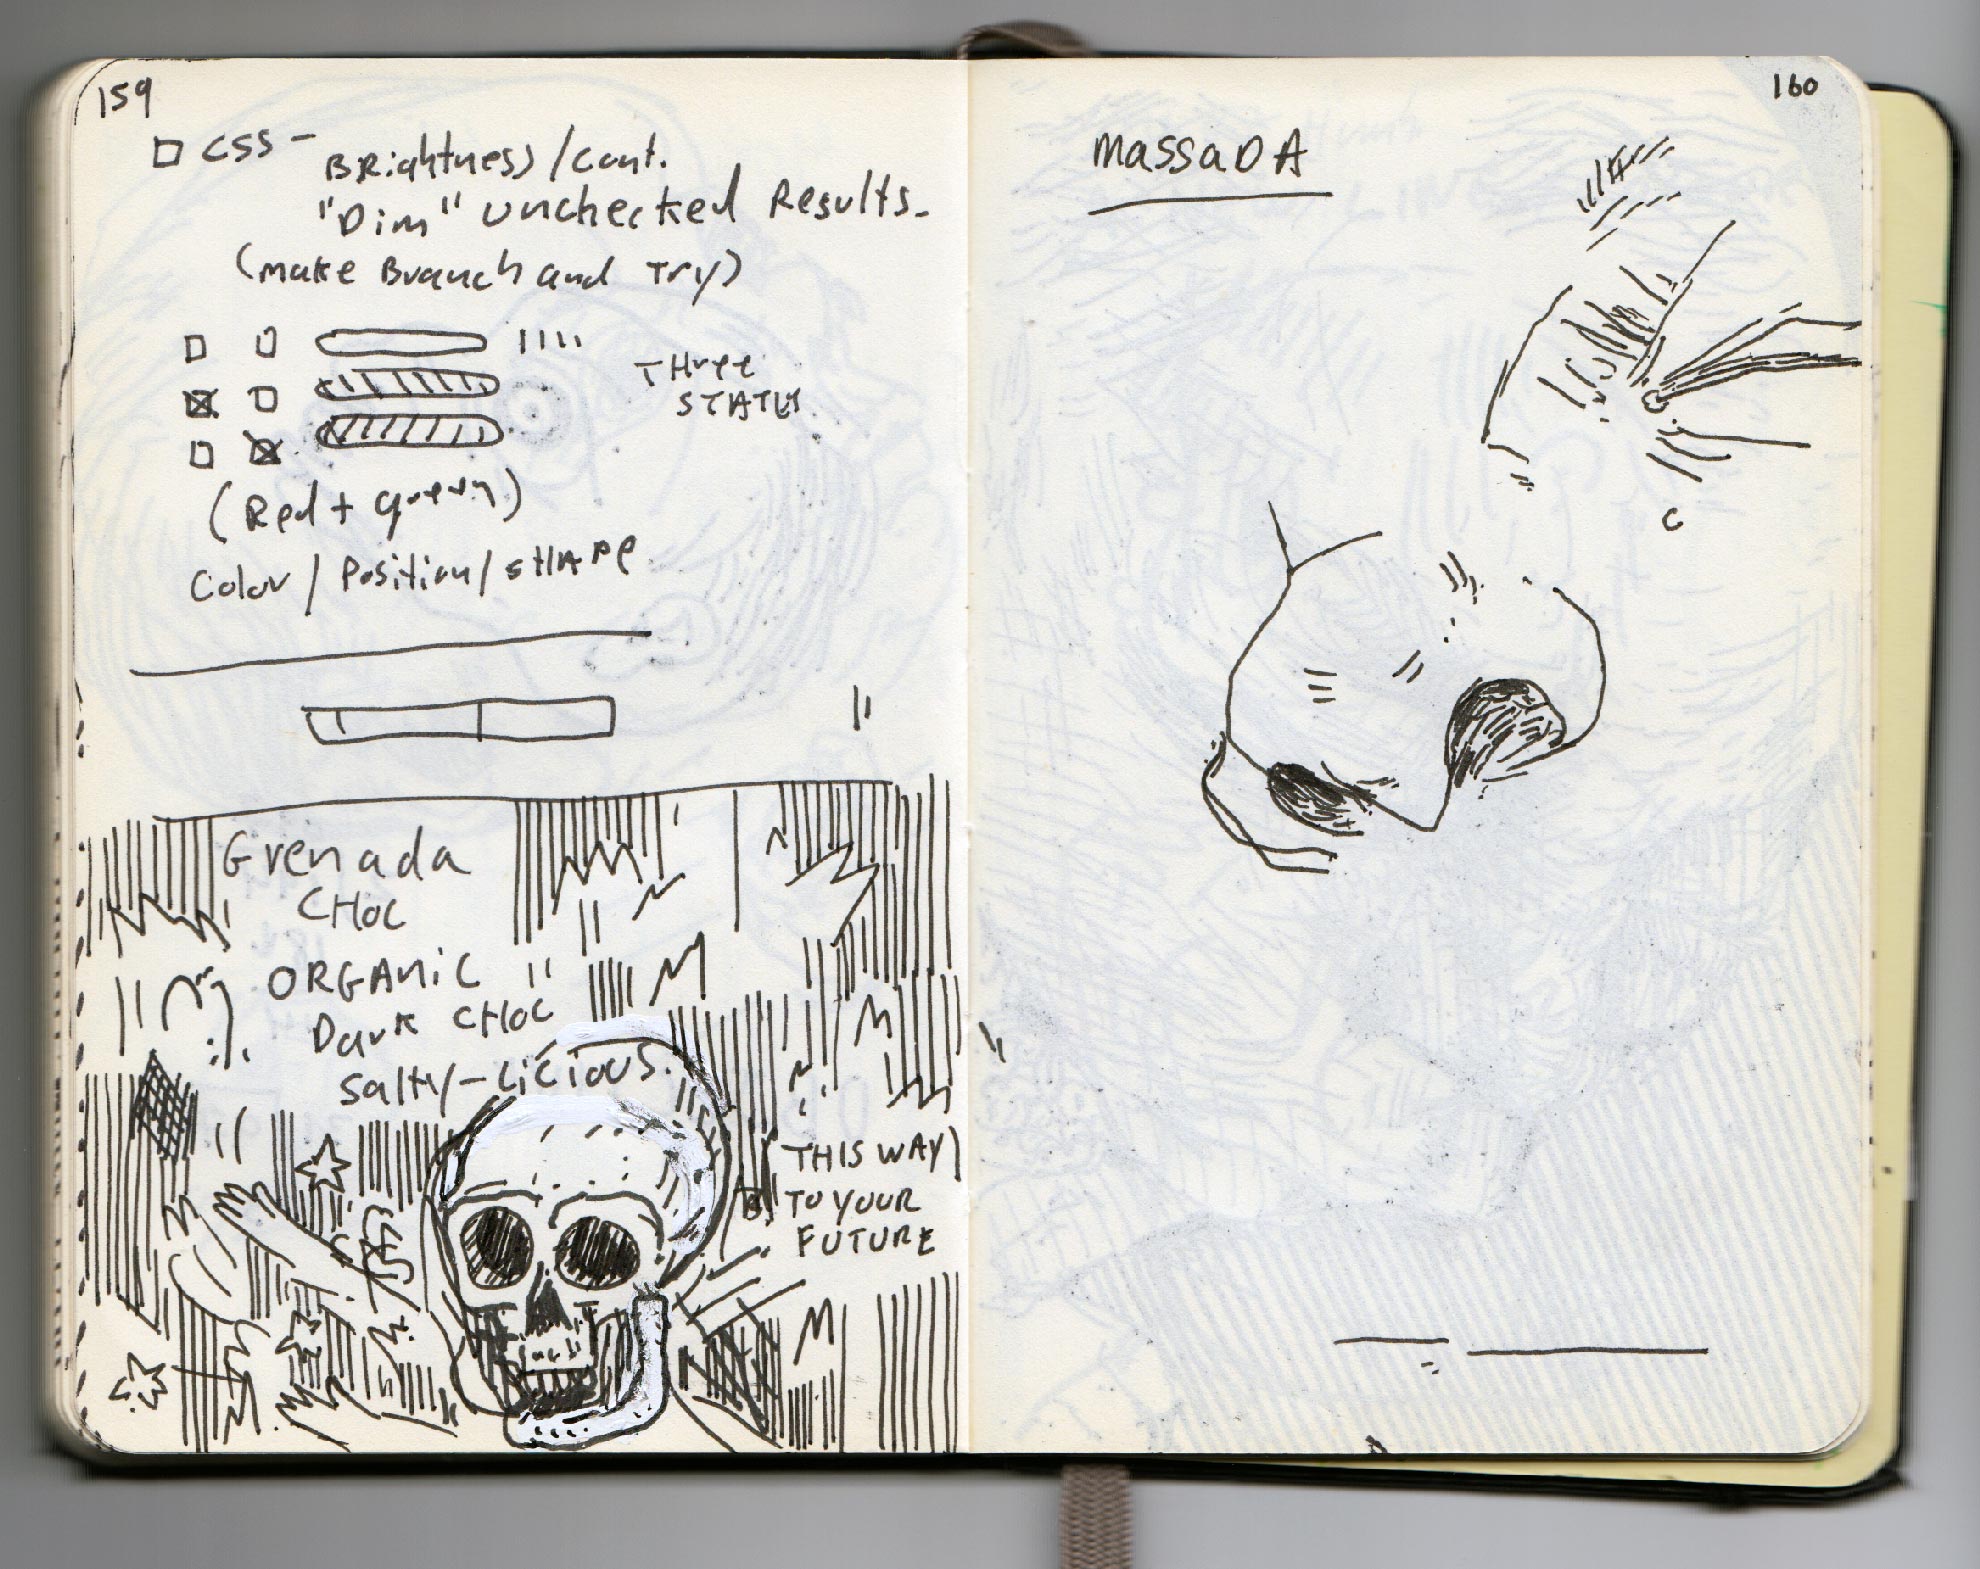 159
CSS -
Brightness/cont.
"Dim" unchecked Results.
(make Branch and Try)
Three
States
(Red + green)
Color / Position / shape
Grenada
CHOC
ORGANIC
Dark CHOC
Salty-licious.
THIS WAY
TO YOUR
FUTURE
160
massaDA